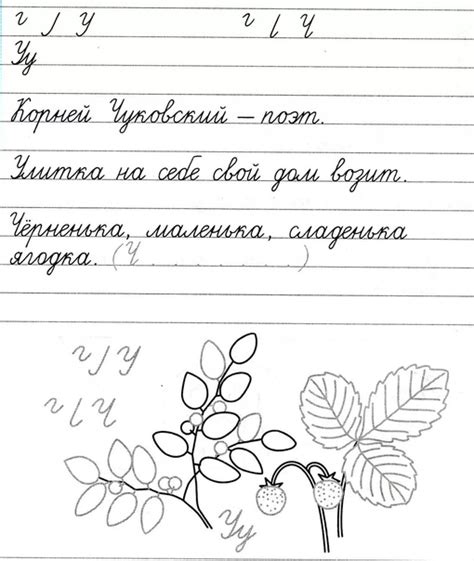 г J У г ɩ Ч
Уу
Корней Чуковский – поэт.
Улитка на себе свой дом возит.
Чёрненька, маленька, сладенька
ягодка. (Ч . . . . . . . . . )
г J У
г ɩ Ч
Уу